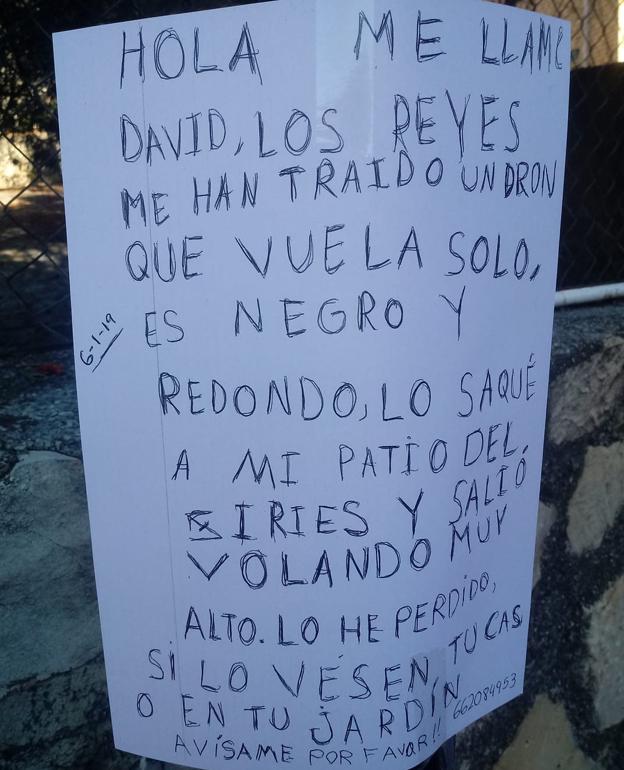 HOLA ME LLAMO
DAVID, LOS REYES
ME HAN TRAIDO UN DRON
QUE VUELA SOLO,
ES NEGRO Y
6-1-19
REDONDO, LO SAQUÉ
A MI PATIO DEL
IRIES Y SALIÓ
VOLANDO MUY
ALTO. LO HE PERDIDO,
SI LO VES EN TU CAS
O EN TU JARDÍN
AVÍSAME POR FAVOR!! 662084953